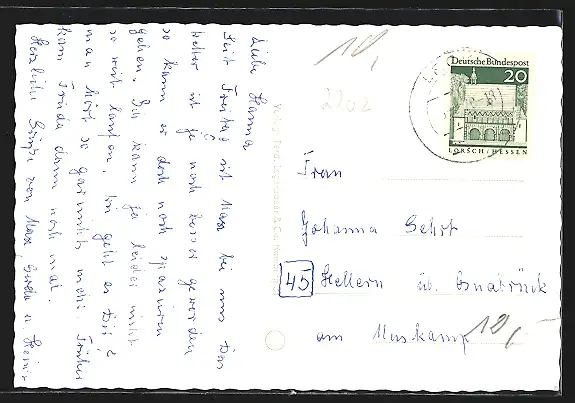 Liebe Hanna
Seit Freitag ist Max bei uns Das
Wetter ist ja noch besser geworden
so kann er doch noch spazieren
gehen. Ich kann ja leider nicht
so weit laufen. Wie geht es Dir?
man hört so gar nichts mehr. Früher
kam Frieda dann noch mal.
Herzliche Grüße von Max, Gerda u. Heinz
10,
2202
Deutsche Bundespost
20
LORSCH/HESSEN
Frau
Johanna Sehrt
45 Hellern üb. Osnabrück
am Muskamp
10,-